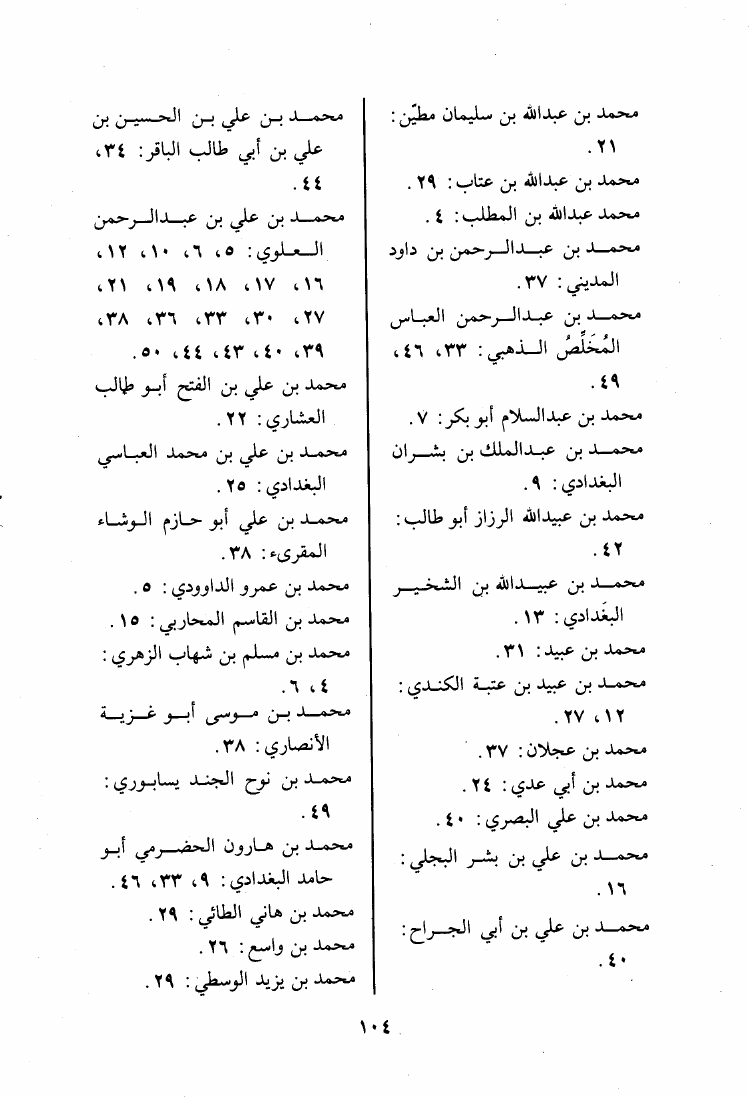 محمد بن عبدالله بن سليمان مطيّن:
٢١.
محمد بن عبدالله بن عتاب: ٢٩.
محمد عبدالله بن المطلب: ٤.
محمد بن عبدالرحمن بن داود
المديني: ٣٧.
محمد بن عبدالرحمن العباس
المُخَلِّصُ الذهبي: ٣٣، ٤٦،
٤٩.
محمد بن عبدالسلام أبو بكر: ٧.
محمد بن عبدالملك بن بشران
البغدادي: ٩.
محمد بن عبيدالله الرزاز أبو طالب:
٤٢.
محمد بن عبيدالله بن الشخير
البغدادي: ١٣.
محمد بن عبيد: ٣١.
محمد بن عبيد بن عتبة الكندي:
١٢، ٢٧.
محمد بن عجلان: ٣٧.
محمد بن أبي عدي: ٢٤.
محمد بن علي البصري: ٤٠.
محمد بن علي بن بشر البجلي:
١٦.
محمد بن علي بن أبي الجراح:
٤٠.
محمد بن علي بن الحسين بن
علي بن أبي طالب الباقر: ٣٤،
٤٤.
محمد بن علي بن عبدالرحمن
العلوي: ٥، ٦، ١٠، ١٢،
١٦، ١٧، ١٨، ١٩، ٢١،
٢٧، ٣٠، ٣٣، ٣٦، ٣٨،
٣٩، ٤٠، ٤٣، ٤٤، ٥٠.
محمد بن علي بن الفتح أبو طالب
العشاري: ٢٢.
محمد بن علي بن محمد العباسي
البغدادي: ٢٥.
محمد بن علي أبو حازم الوشاء
المقرىء: ٣٨.
محمد بن عمرو الداوودي: ٥.
محمد بن القاسم المحاربي: ١٥.
محمد بن مسلم بن شهاب الزهري:
٤، ٦.
محمد بن موسى أبو غزية
الأنصاري: ٣٨.
محمد بن نوح الجند يسابوري:
٤٩.
محمد بن هارون الحضرمي أبو
حامد البغدادي: ٩، ٣٣، ٤٦.
محمد بن هاني الطائي: ٢٩.
محمد بن واسع: ٢٦.
محمد بن يزيد الوسطي: ٢٩.
١٠٤